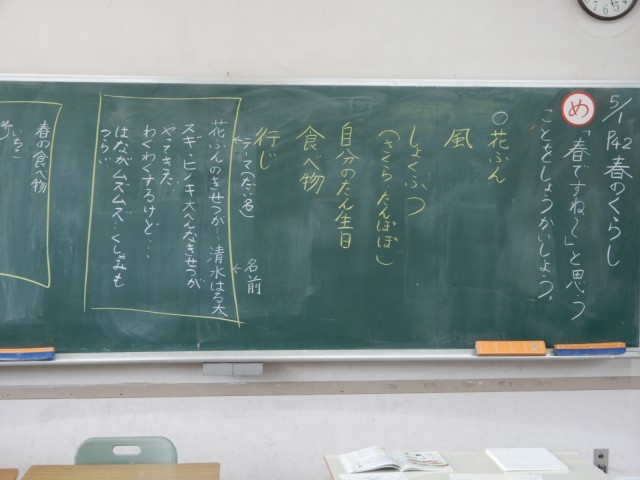 5/1 P42 春のくらし
め 「春ですね〜」と思うことをしょうかいしよう。
○花ふん
風
しょくぶつ
(さくら・たんぽぽ)
自分のたん生日
食べ物
行じ
テーマ(だい名)
名前
花ふんのきせつが… 清水はる太
スギ・ヒノキ大へんなきせつが
やってきた。
わくわくするけど…
はながムズムズ・くしゃみも
つらい
春の食べ物
いちご